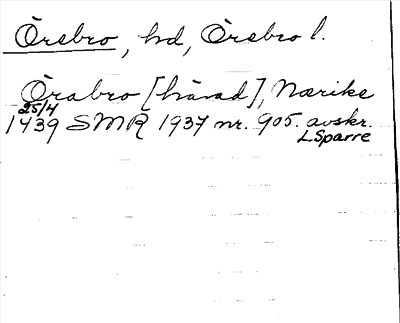 Örebro, hd, Örebro l.
Örabro [härad], Nærike
25/4
1439 SMR 1937 nr. 905. avskr.
L. Sparre